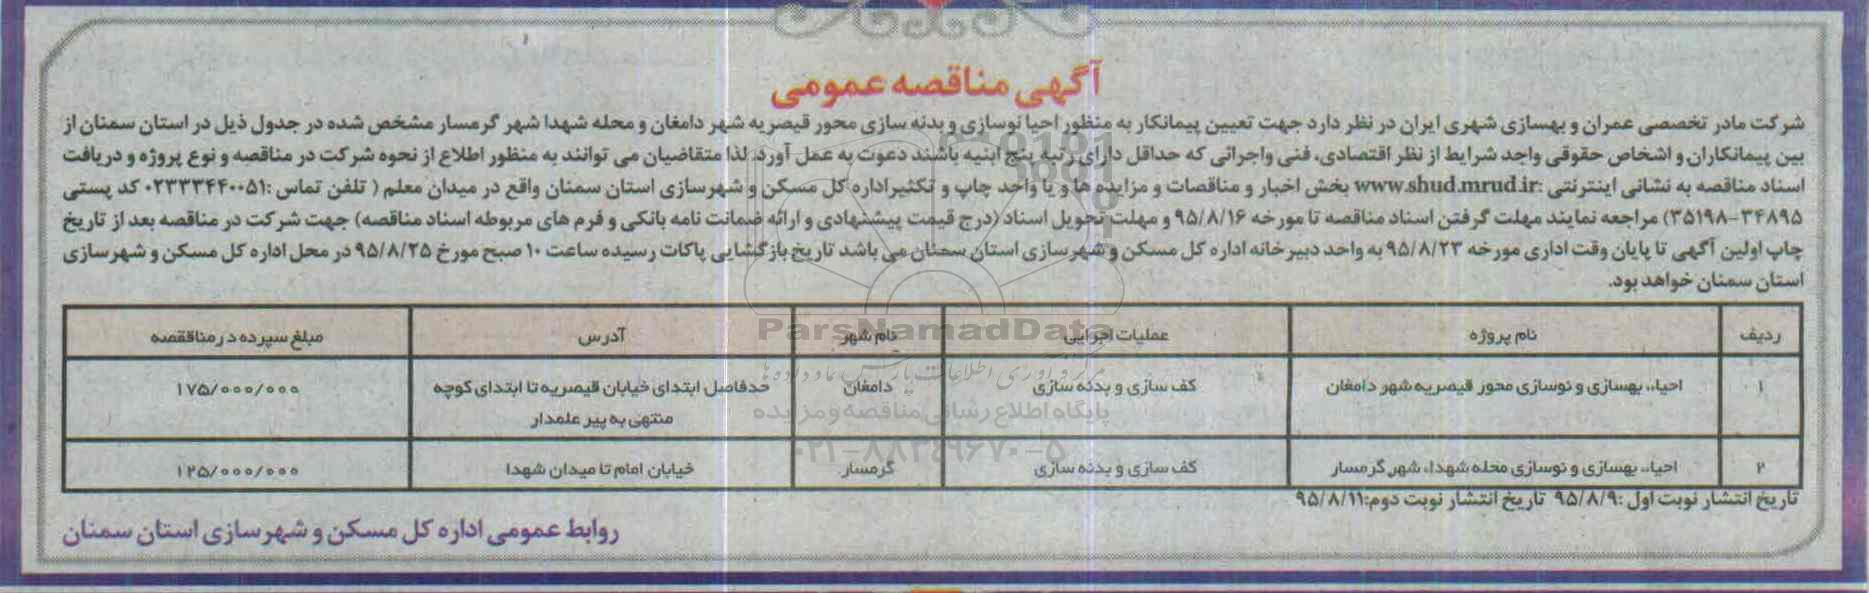 آگهی مناقصه عمومی
شرکت مادر تخصصی عمران و بهسازی شهری ایران در نظر دارد جهت تعیین پیمانکار به منظور احیا نوسازی و بدنه سازی محور قیصریه شهر دامغان و محله شهدا شهر گرمسار مشخص شده در جدول ذیل در استان سمنان از
بین پیمانکاران و اشخاص حقوقی واجد شرایط از نظر اقتصادی، فنی واجرائی که حداقل دارای رتبه پنج ابنیه باشند دعوت به عمل آورد. لذا متقاضیان می توانند به منظور اطلاع از نحوه شرکت در مناقصه و نوع پروژه و دریافت
اسناد مناقصه به نشانی اینترنتی :www.shud.mrud.ir بخش اخبار و مناقصات و مزایده ها و یا واحد چاپ و تکثیر اداره کل مسکن و شهرسازی استان سمنان واقع در میدان معلم ( تلفن تماس :۰۲۳۳۳۴۴۰۰۵۱ کد پستی
۳۴۸۹۵-۳۵۱۹۸) مراجعه نمایند مهلت گرفتن اسناد مناقصه تا مورخه ۹۵/۸/۱۶ و مهلت تحویل اسناد (درج قیمت پیشنهادی و ارائه ضمانت نامه بانکی و فرم های مربوطه اسناد مناقصه) جهت شرکت در مناقصه بعد از تاریخ
چاپ اولین آگهی تا پایان وقت اداری مورخه ۹۵/۸/۲۳ به واحد دبیرخانه اداره کل مسکن و شهرسازی استان سمنان می باشد تاریخ بازگشایی پاکات رسیده ساعت ۱۰ صبح مورخ ۹۵/۸/۲۵ در محل اداره کل مسکن و شهرسازی
استان سمنان خواهد بود.
ردیف نام پروژه عملیات اجرایی نام شهر آدرس مبلغ سپرده در مناققصه
۱ احیاء، بهسازی و نوسازی محور قیصریه شهر دامغان کف سازی و بدنه سازی دامغان حدفاصل ابتدای خیابان قیصریه تا ابتدای کوچه ۱۷۵/۰۰۰/۰۰۰
منتهی به پیر علمدار
۲ احیاء، بهسازی و نوسازی محله شهداء شهر گرمسار کف سازی و بدنه سازی گرمسار خیابان امام تا میدان شهدا ۱۲۵/۰۰۰/۰۰۰
تاریخ انتشار نوبت اول :۹۵/۸/۹ تاریخ انتشار نوبت دوم:۹۵/۸/۱۱
روابط عمومی اداره کل مسکن و شهرسازی استان سمنان
ParsNamadData
پایگاه اطلاع رسانی مناقصه و مزایده
۰۲۱-۸۸۳۴۹۶۷۰-۵